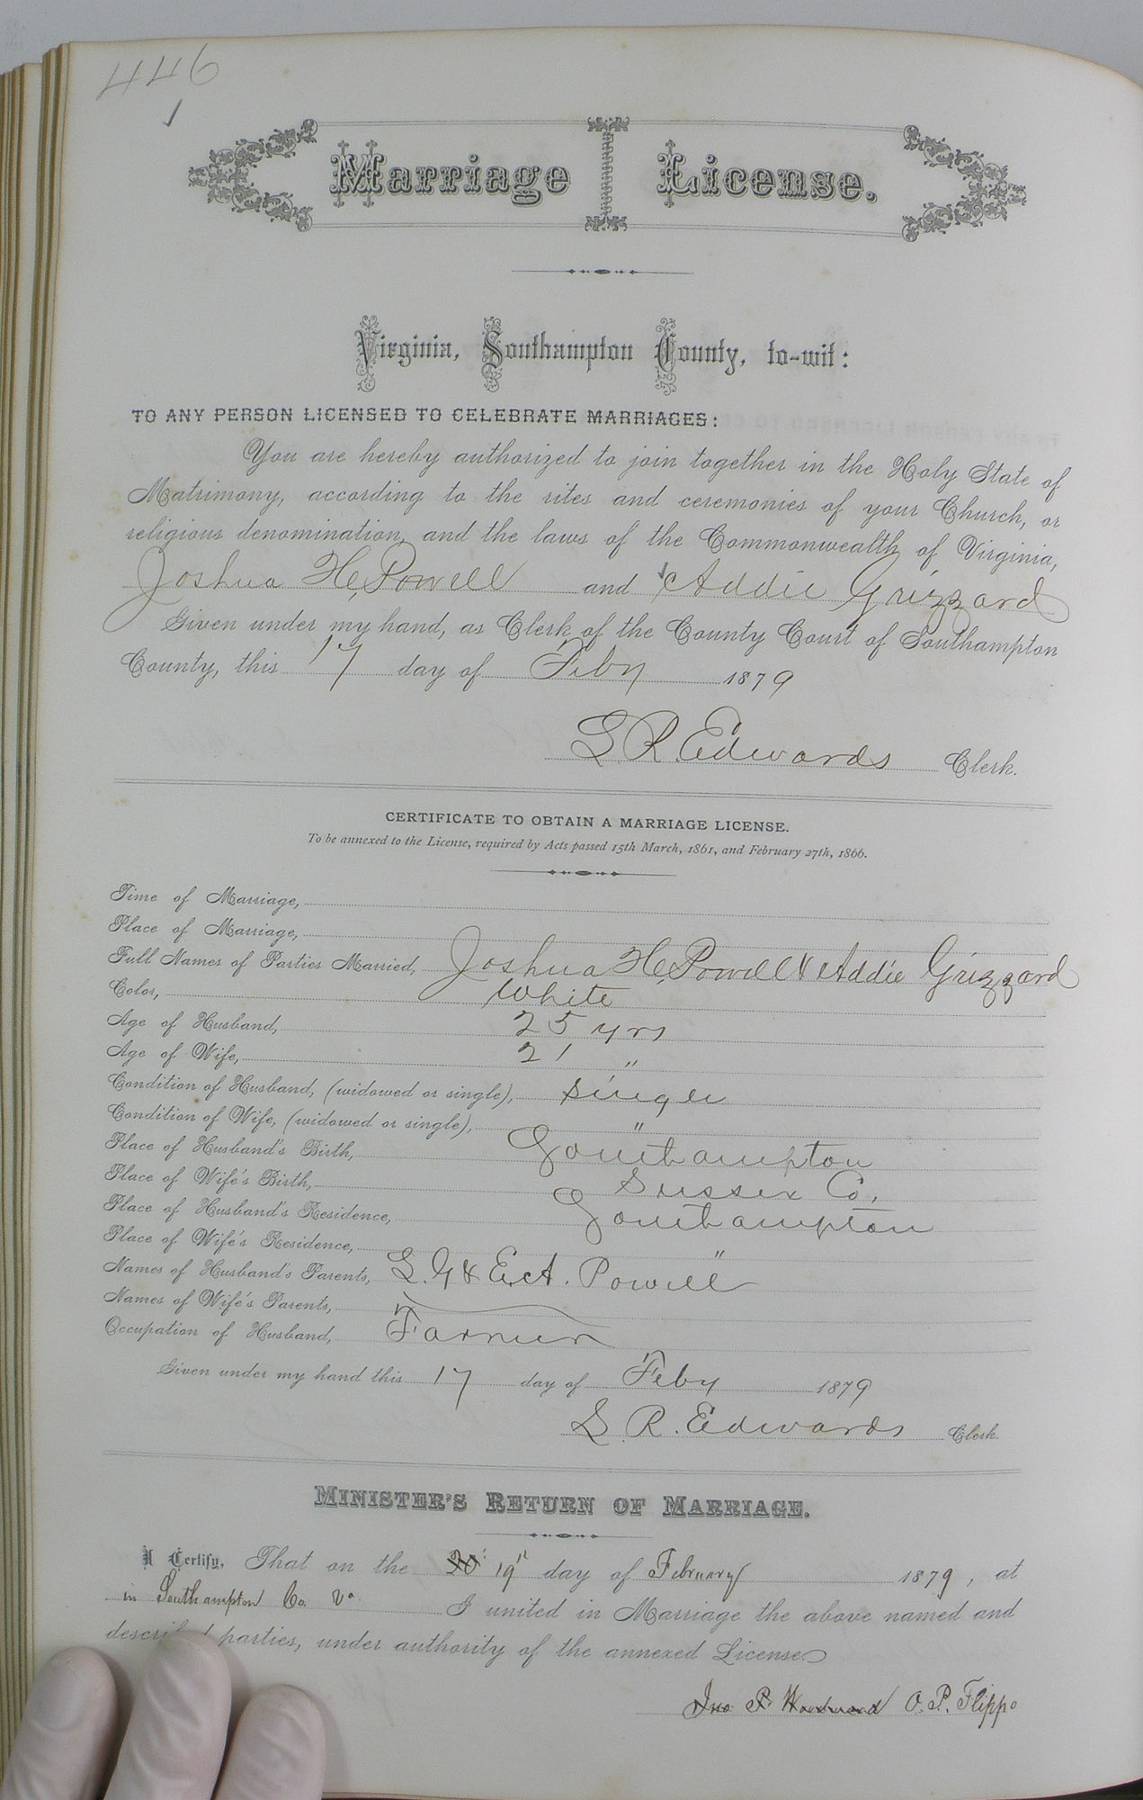 446
Marriage License.
Virginia, Southampton County, to-wit:
TO ANY PERSON LICENSED TO CELEBRATE MARRIAGES:
You are hereby authorized to join together in the Holy State of
Matrimony, according to the rites and ceremonies of your Church, or
religious denomination, and the laws of the Commonwealth of Virginia,
Joshua H. Powell and Addie Grizzard
Given under my hand, as Clerk of the County Court of Southampton
County, this 17 day of Feby 1879
L. R. Edwards Clerk.
CERTIFICATE TO OBTAIN A MARRIAGE LICENSE.
To be annexed to the License, required by Acts passed 15th March, 1861, and February 27th, 1866.
Time of Marriage,
Place of Marriage,
Full Names of Parties Married, Joshua H. Powell & Addie Grizzard
Color, White
Age of Husband, 25 yrs
Age of Wife, 21 "
Condition of Husband, (widowed or single), single
Condition of Wife, (widowed or single), "
Place of Husband's Birth, Southampton
Place of Wife's Birth, Sussex Co.
Place of Husband's Residence, Southampton
Place of Wife's Residence, "
Names of Husband's Parents, Powell
Names of Wife's Parents,
Occupation of Husband, Farmer
Given under my hand this 17 day of Feby 1879
L. R. Edwards Clerk
MINISTER'S RETURN OF MARRIAGE.
I Certify, That on the 20 19" day of February 1879, at
in Southampton Co. Va I united in Marriage the above named and
described parties, under authority of the annexed License
Jno P. Woodward O. P. Flippo